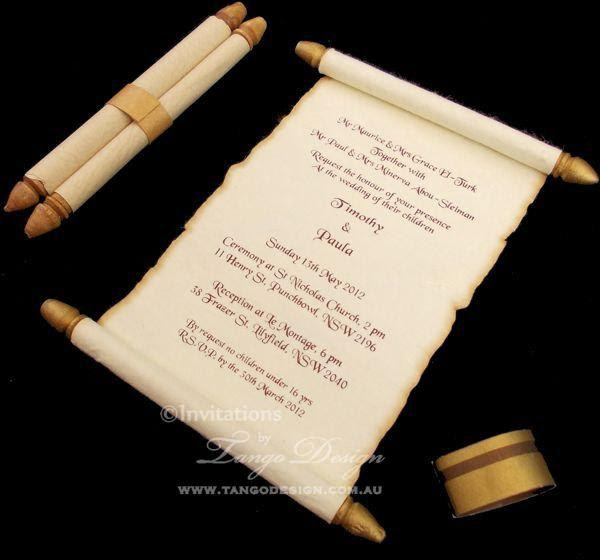 Mr Maurice & Mrs Grace El-Turk
Together with
Mr Paul & Mrs Minerva Abou-Sleiman
Request the honour of your presence
At the wedding of their children
Timothy
&
Paula
Sunday 13th May 2012
Ceremony at St Nicholas Church, 2 pm
11 Henry St, Punchbowl, NSW 2196
Reception at Le Montage, 6 pm
38 Frazer St, Lilyfield, NSW 2040
By request no children under 16 yrs
R.S.V.P. by the 30th March 2012
©Invitations
by
Tango Design
WWW.TANGODESIGN.COM.AU